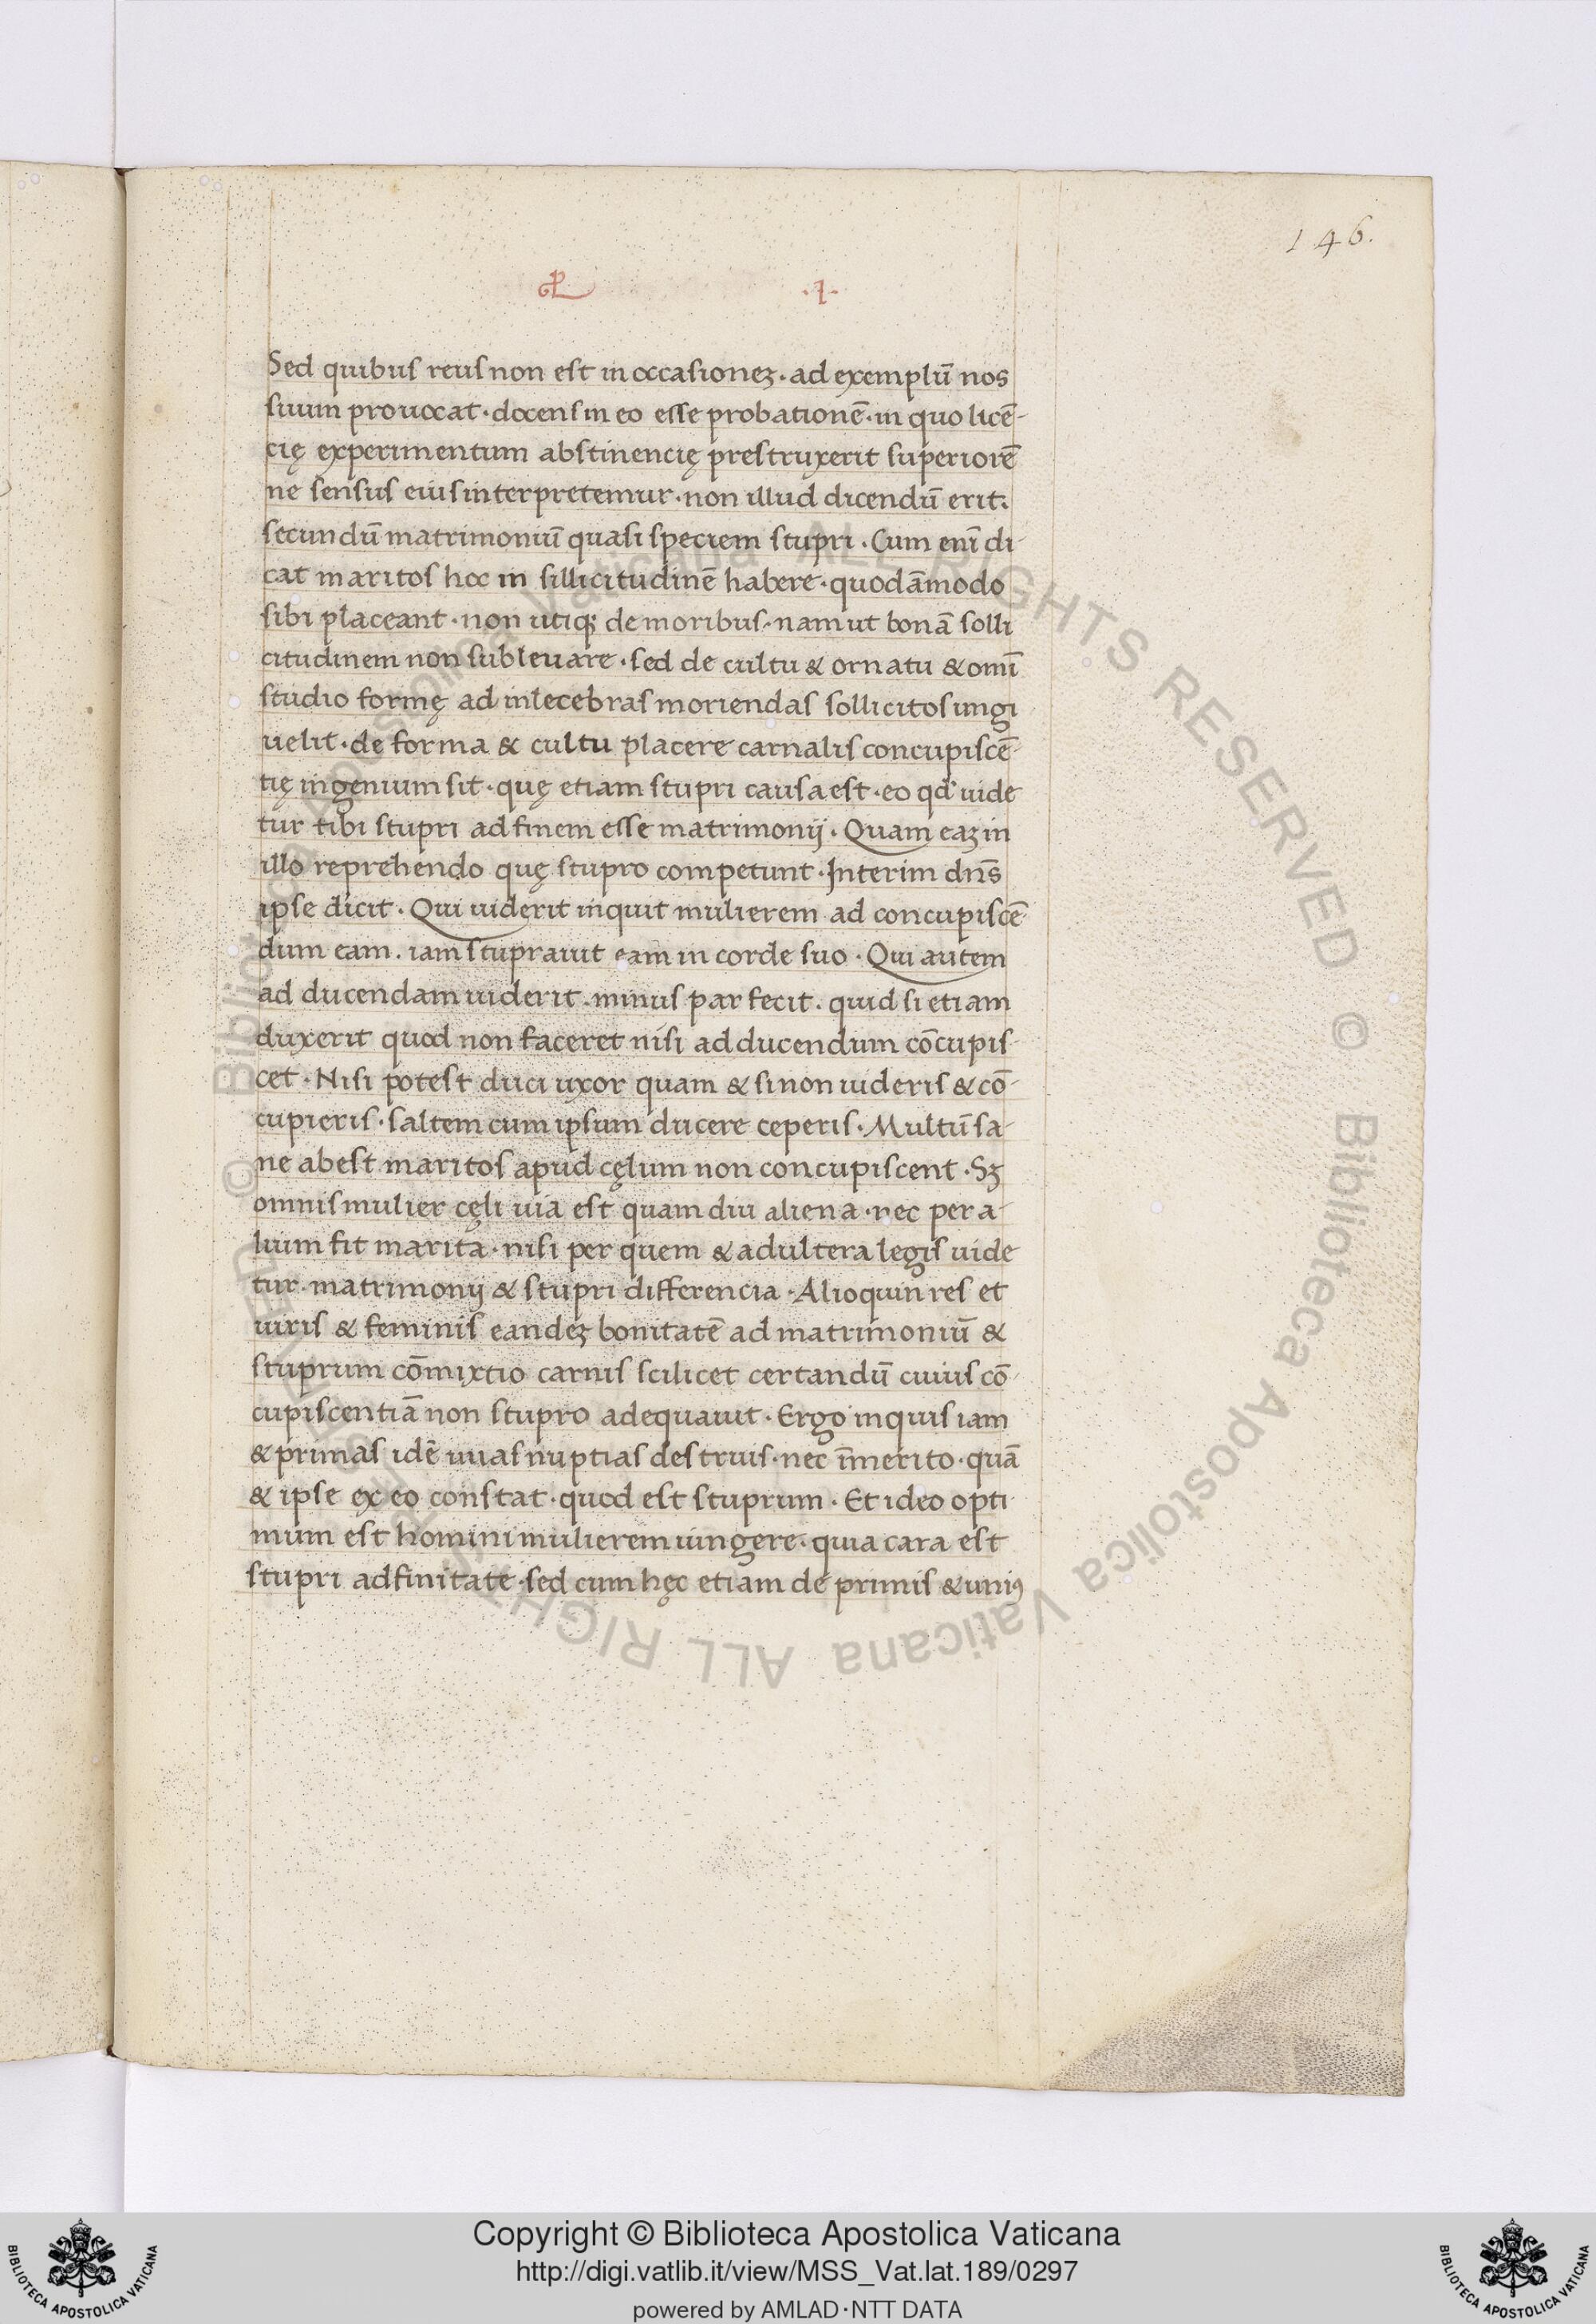 146.
·1·
Sed quibus reus non est in occasionez · ad exemplū nos
suum prouocat · docens in eo esse probationē · in quo licē-
cię experimentum abstinencię prestruxerit superiorē
ne sensus eius interpretemur · non illud dicendū erit.
secundū matrimoniū quasi speciem stupri . Cum eni̅ di-
cat maritos hoc in sillicitudinē habere · quodāmodo
sibi placeant · non utiqꝫ de moribus · nam ut bonā solli
citudinem non subleuare · sed de cultu & ornatu & omi̅
studio formę ad inlecebras moriendas sollicitos iungi
uelit · de forma & cultu placere carnalis concupiscē-
tię ingenium sit · quę etiam stupri causa est · eo qd̄ uide
tur tibi stupri ad finem esse matrimonij . Quam eaꝫ in
illo reprehendo quę stupro competunt · Interim dn̄s
ipse dicit . Qui uiderit inquit mulierem ad concupiscē-
dum eam . iam stuprauit eam in corde suo . Qui autem
ad ducendam uiderit . minus par fecit . quid si etiam
duxerit quod non faceret nisi ad ducendum cōcupis-
cet · Nisi potest duci uxor quam & si non uideris & cō-
cupieris · saltem cum ipsum ducere ceperis · Multū sa-
ne abest maritos apud cęlum non concupiscent · Sꝫ
omnis mulier cęli uia est quam diu aliena · nec per a-
luim fit marita · nisi per quem & adultera legis uide
tur · matrimonij & stupri differencia · Alioquin res et
uiris & feminis eandeꝫ bonitatē ad matrimoniū &
stuprum cōmixtio carnis scilicet certandū cuius cō-
cupiscentiā non stupro adequauit · Ergo inquis iam
& primas idē uuas nuptias destruis · nec īmerito · quā
& ipse ex eo constat · quod est stuprum · Et ideo opti
mum est homini mulierem uingere · quia cara est
stupri adfinitate · sed cum hęc etiam de primis & uniꝰ
© Biblioteca Apostolica Vaticana ALL RIGHTS RESERVED © Biblioteca Apostolica Vaticana ALL RIGHTS RESERVED
Copyright © Biblioteca Apostolica Vaticana
http://digi.vatlib.it/view/MSS_Vat.lat.189/0297
powered by AMLAD·NTT DATA
BIBLIOTECA APOSTOLICA VATICANA
BIBLIOTECA APOSTOLICA VATICANA